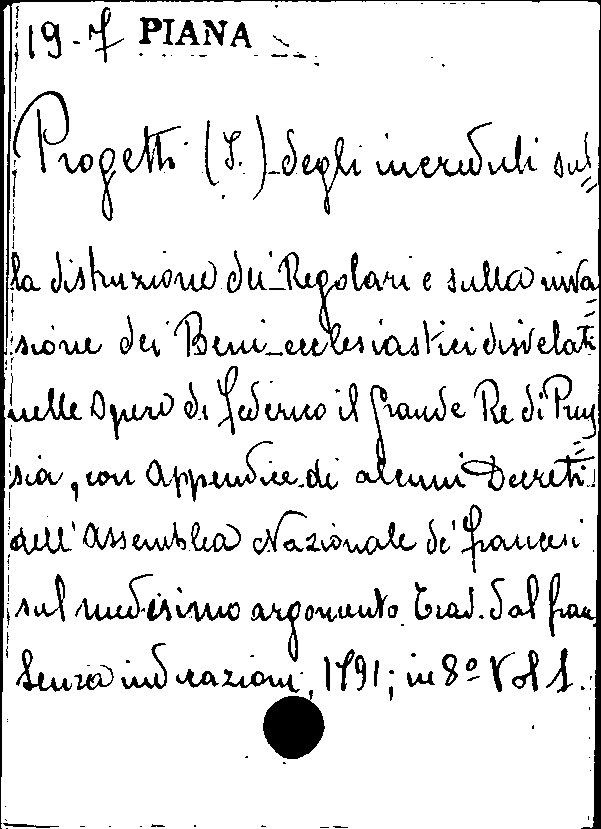 19-7 PIANA
Progetti (I.) degli increduli sul=
la distruzione de' Regolari e sulla inva=
sione dei Beni ecclesiastici disvelati
nelle opere di Federico il grande Re di Prus=
sia, con appendice di alcuni Decreti
dell' Assemblea Nazionale de' francesi
sul medesimo argomento. Trad. dal fran.
Senza indicazioni, 1791; in 8º Vol 1.